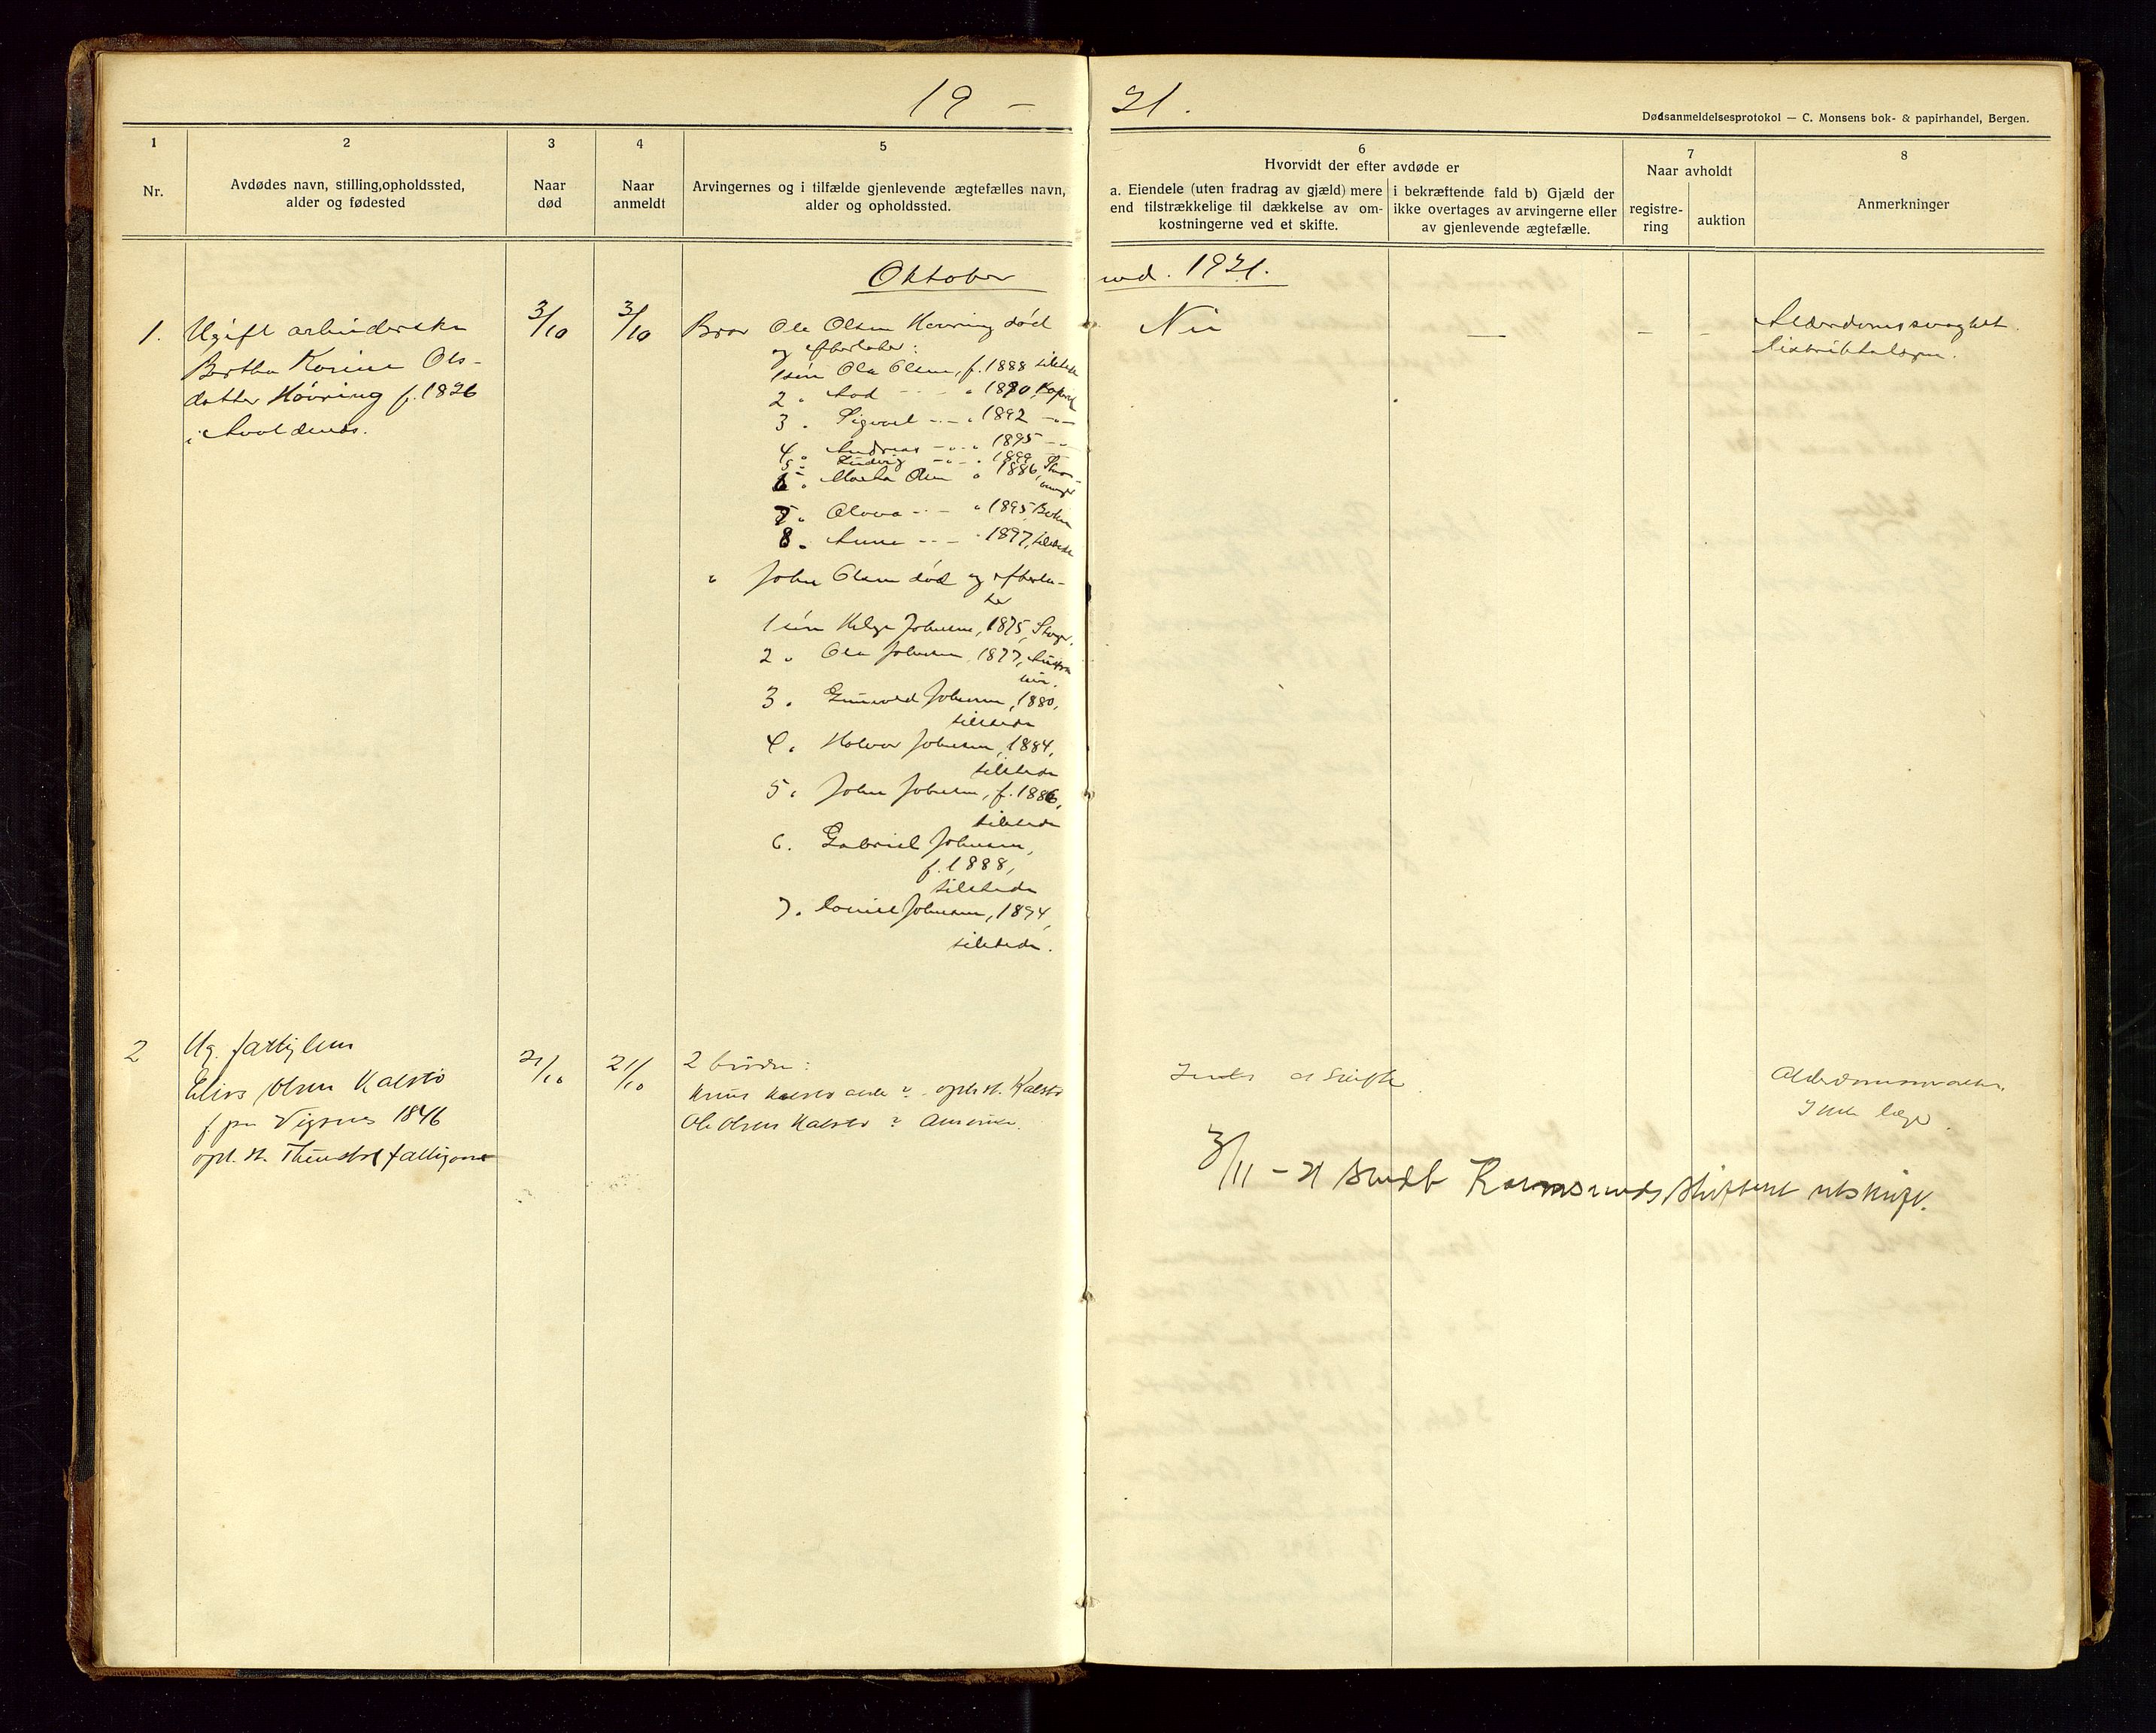 19 – 21.
Dødsanmeldelsesprotokol — C. Monsens bok- & papirhandel, Bergen.
1
Nr.
2
Avdødes navn, stilling, opholdssted,
alder og fødested
3
Naar
død
4
Naar
anmeldt
5
Arvingernes og i tilfælde gjenlevende ægtefælles navn,
alder og opholdssted.
6
Hvorvidt der efter avdøde er
a. Eiendele (uten fradrag av gjæld) mere
end tilstrækkelige til dækkelse av om-
kostningerne ved et skifte.
i bekræftende fald b) Gjæld der
ikke overtages av arvingerne eller
av gjenlevende ægtefælle.
7
Naar avholdt
registre-
ring
auktion
8
Anmerkninger
Oktober md. 1921.
1.
Ugift arbeiderske
Bertha Karine Ols-
datter Høvring f. 1826
i Avaldsnes.
3/10
3/10
Bror Ole Olsen Høvring død
og efterlater:
1 søn Ole Olsen, f. 1888 tilstede
2 " 1890, Koperv
3 " Sigval " 1892
4 " Andreas " 1895
5 " Ludvig
6 " Olsen " 1886,
7 " 1895
8 " Anne " 1897, tilstede
" John Olsen død og efterla-
ter
1 søn Helge Johnsen, 1875, Stvgr.
2 " Ole Johnsen, 1877,
3 " Gunvald Johnsen, 1880,
tilstede
4 " Halvor Johnsen, 1884,
tilstede
5 " John Johnsen, f. 1886,
tilstede
6. Gabriel Johnsen,
f. 1888,
tilstede
7. Johnsen, 1894,
tilstede.
Nei
—
–
–
Alderdomssvaghet.
Distriktslægen.
2
Ug. fattiglem
Elias Olsen Kalstø
f. paa Vigsnes 1846
opl. st. fattiggaard
21/10
21/10
2 brødre:
Knut Kalstø alder ? opholdst. Kalstø
Ole Olsen Kalstø ? Amerika.
Intet at skifte
Ikke læge.
3/11 – 21 sendt Karmsunds skifteret utskrift.